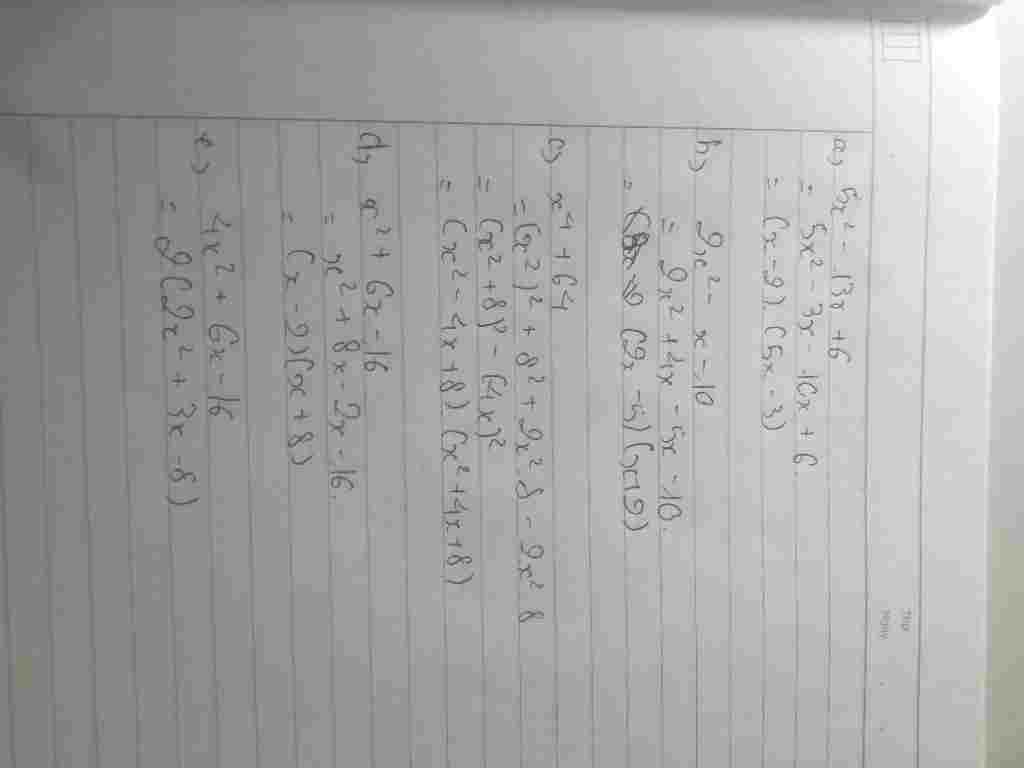 a) 5x² - 13x + 6
= 5x² - 3x - 10x + 6
= (x - 2).(5x - 3)
b) 2x² - x - 10
= 2x² + 4x - 5x - 10.
= (2x - 5)(x + 2)
c) x⁴ + 64
= (x²)² + 8² + 2x² 8 - 2x² 8
= (x² + 8)² - (4x)²
= (x² - 4x + 8)(x² + 4x + 8)
d) x² + 6x - 16
= x² + 8x - 2x - 16.
= (x - 2)(x + 8)
e) 4x² + 6x - 16
= 2(2x² + 3x - 8)